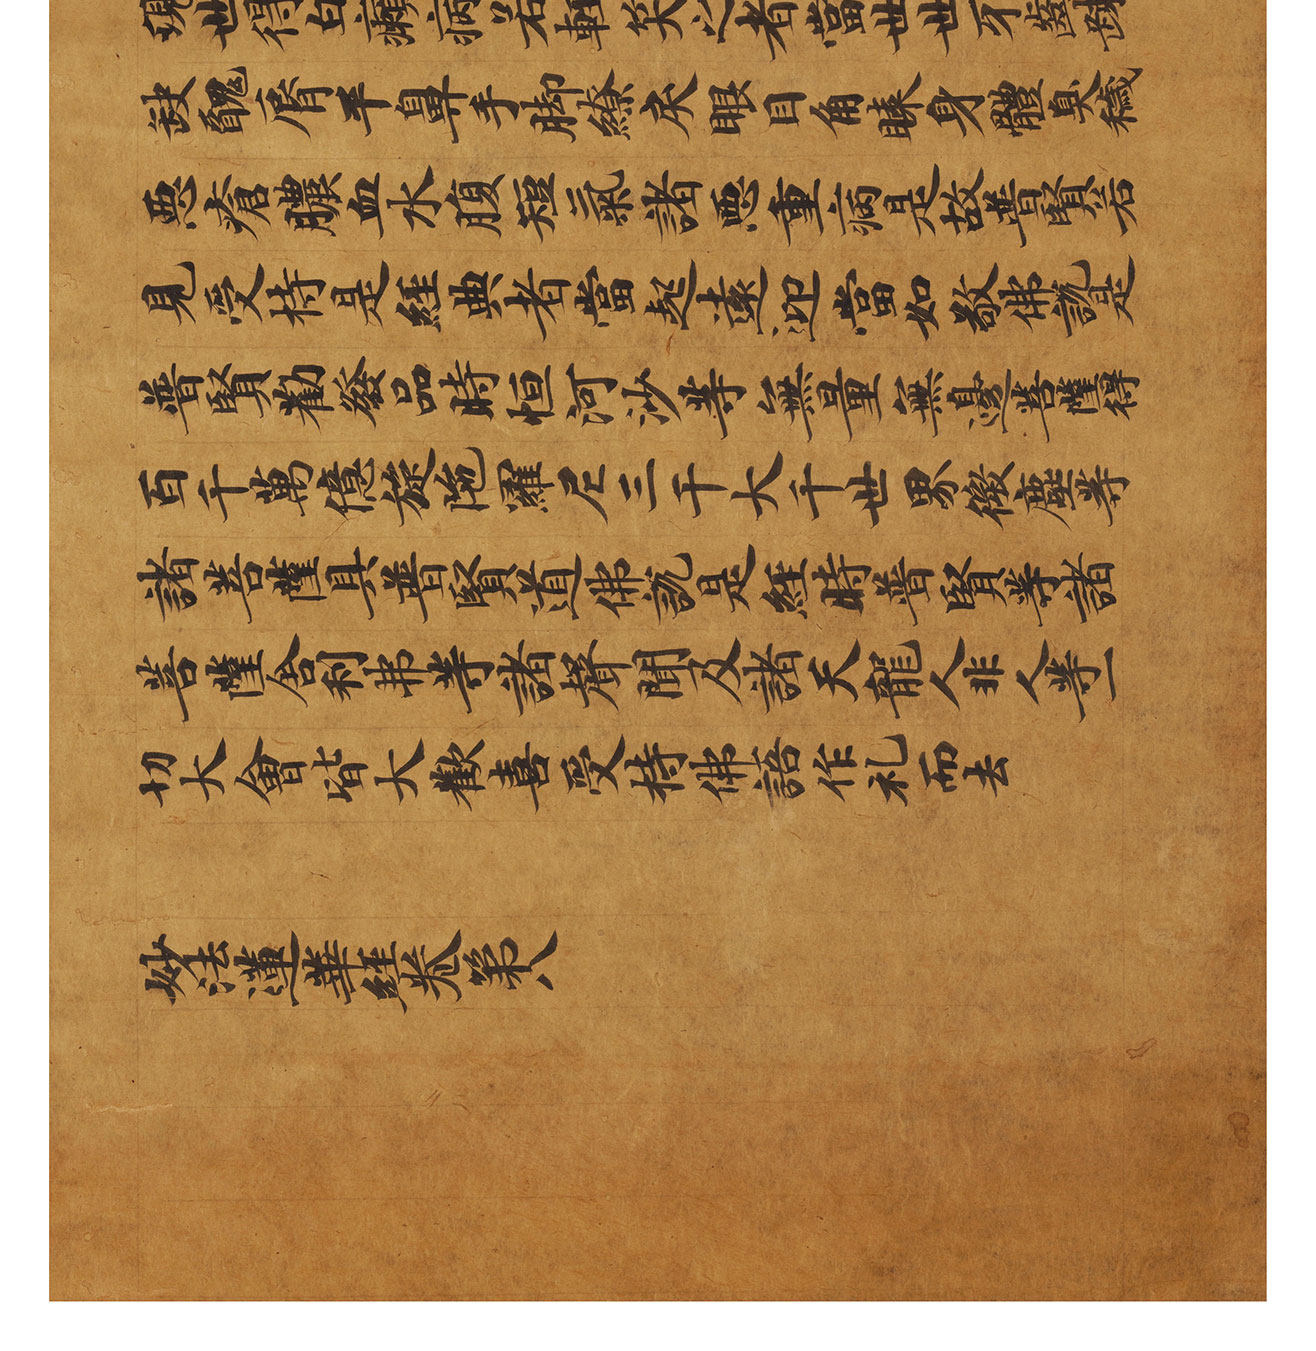 現世得白癩病若輕笑之者當世世牙齒踈
缺醜脣平鼻手腳繚戾眼目角睞身體臭穢
惡瘡膿血水腹短氣諸惡重病是故普賢若
見受持是經典者當起遠迎當如敬佛說是
普賢勸發品時恒河沙等無量無邊菩薩得
百千萬億旋陁羅尼三千大千世界微塵等
諸菩薩具普賢道佛說是經時普賢等諸
菩薩舍利弗等諸聲聞及諸天龍人非人等一
切大會皆大歡喜受持佛語作礼而去
妙法蓮華經卷第八